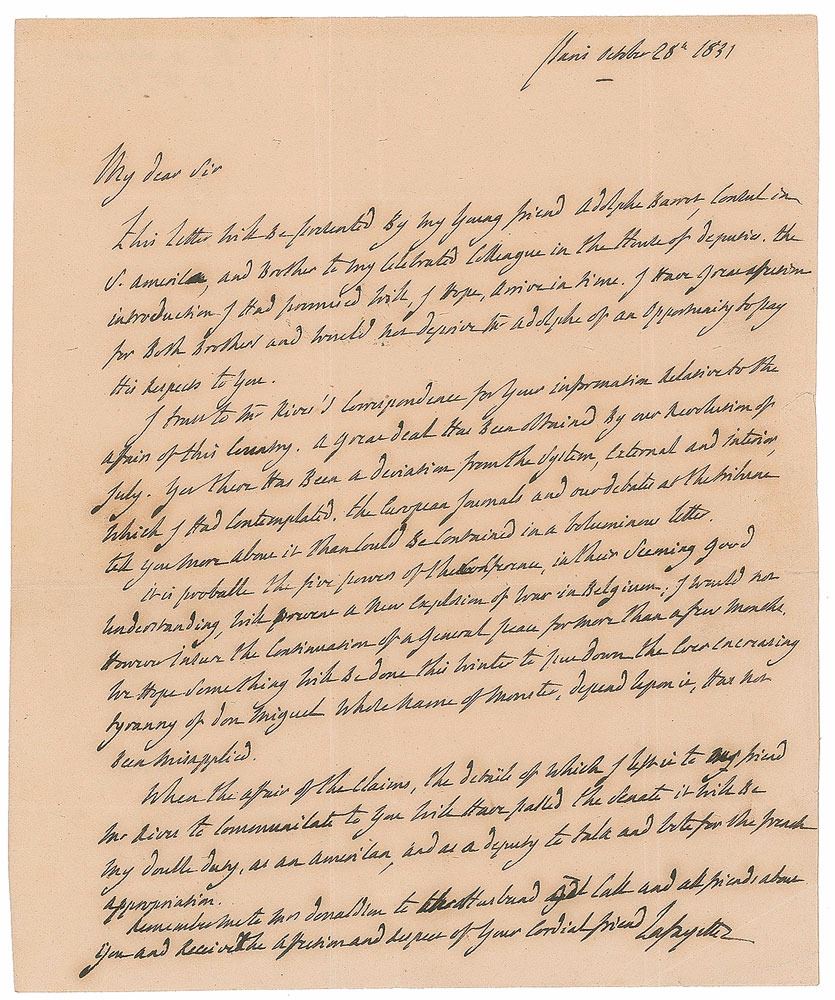 Paris october 28th 1831
My dear Sir
This Letter Will Be presented By my Young friend Adolphe Barrot, Consul in
S. America, and Brother to my Celebrated Colleague in the House of deputies. the
introduction I Had promised Will, I Hope, Arrive in time. I Have great affection
for Both Brothers and Would not deprive Mr Adolphe of an Opportunity to pay
His Respects to You.
I trust to Mr Rives's Correspondence for Your information Relative to the
affairs of this Country. A Great deal Has Been obtained By our Revolution of
July. Yet there Has Been a deviation from the System, External and interior,
Which I Had Contemplated. the European Journals and our debates at the tribune
tell you more about it than Could Be Contained in a Voluminous letter.
it is probable the five powers of the Conference, in their Seeming good
Understanding, Will prevent a New Explosion of War in Belgium; I Would not
However insure the Continuation of a General peace for more than a few months.
We Hope Something Will Be done this Winter to put Down the Ever increasing
tyranny of don Miguel Whose Name of Monster, depend Upon it, Has not
Been Misapplied.
When the affair of the Claims, the details of Which I left it to my friend
Mr Rives to Communicate to You Will Have passed the Senate it Will Be
My double duty, as an American, and as a deputy to talk and Vote for the french
appropriation.
Remember me to Mrs donaldson to the Husband Call and all friends about
You and Receive the affection and Respect of Your Cordial friend Lafayette